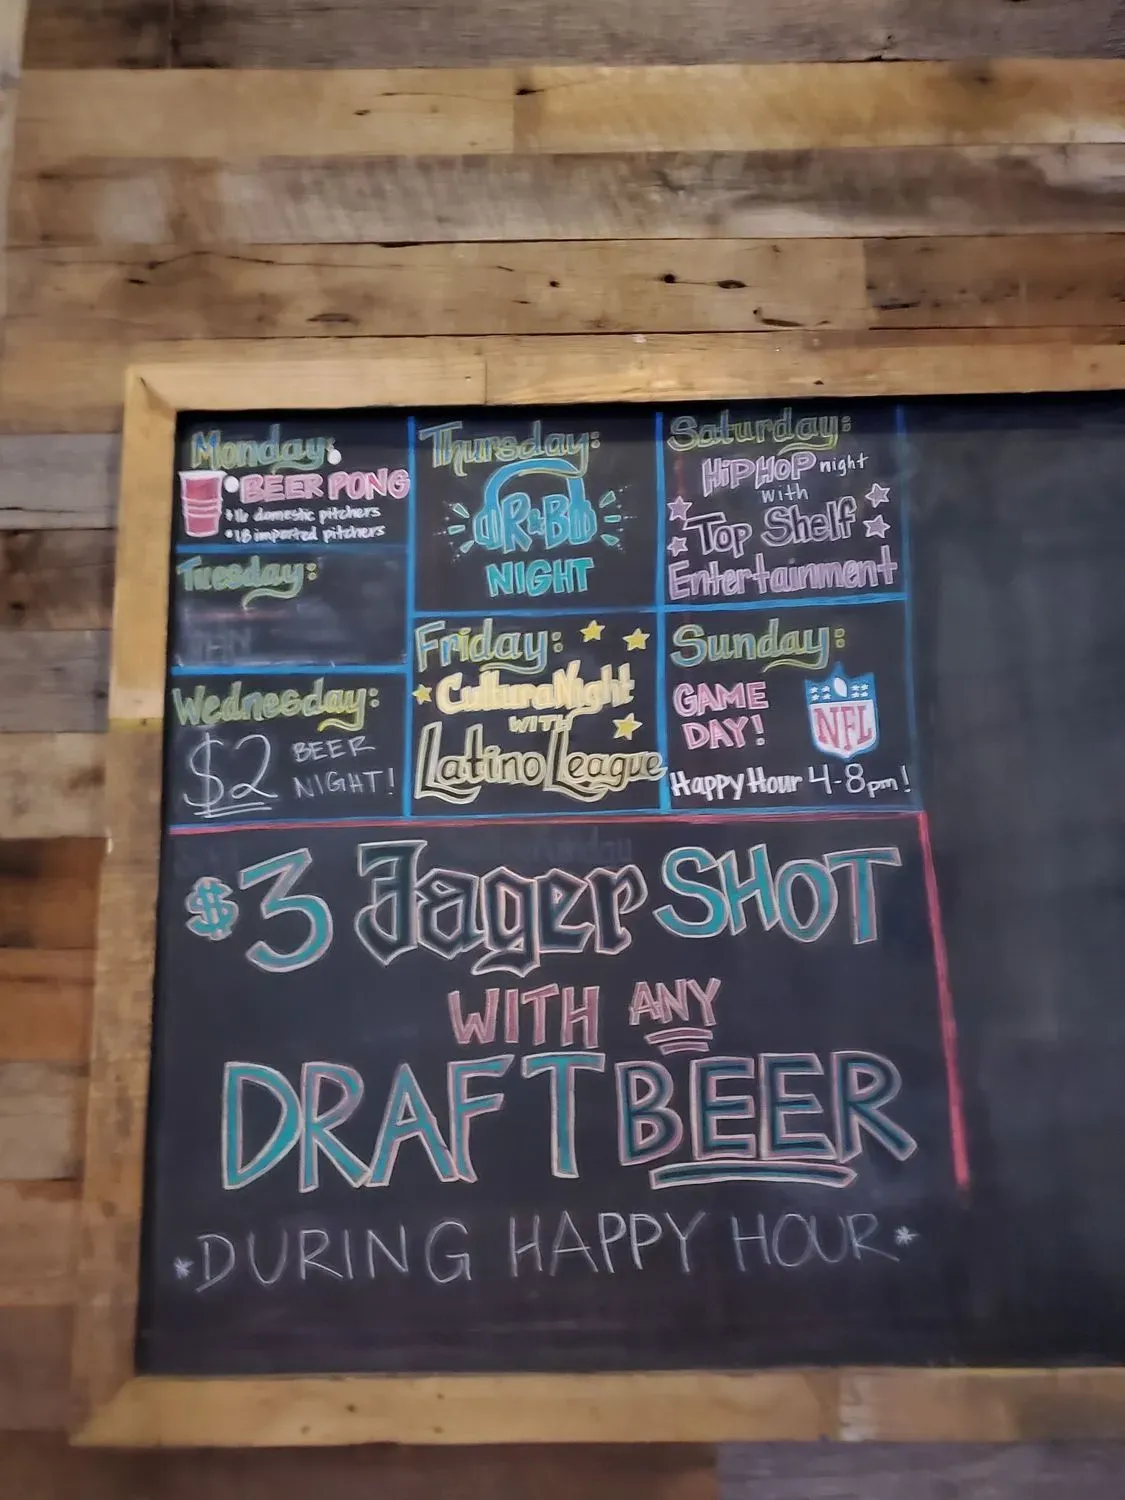 Monday:
• BEER PONG
• 16 domestic pitchers
• 18 imported pitchers
Tuesday:
Wednesday:
$2 BEER
NIGHT!
Thursday:
R&B
NIGHT
Friday:
Cultura Night
WITH
Latino League
Saturday:
HIPHOP night
with
Top Shelf
Entertainment
Sunday:
GAME
DAY!
NFL
Happy Hour 4-8pm!
$3 Jager SHOT
WITH ANY
DRAFT BEER
*DURING HAPPY HOUR*